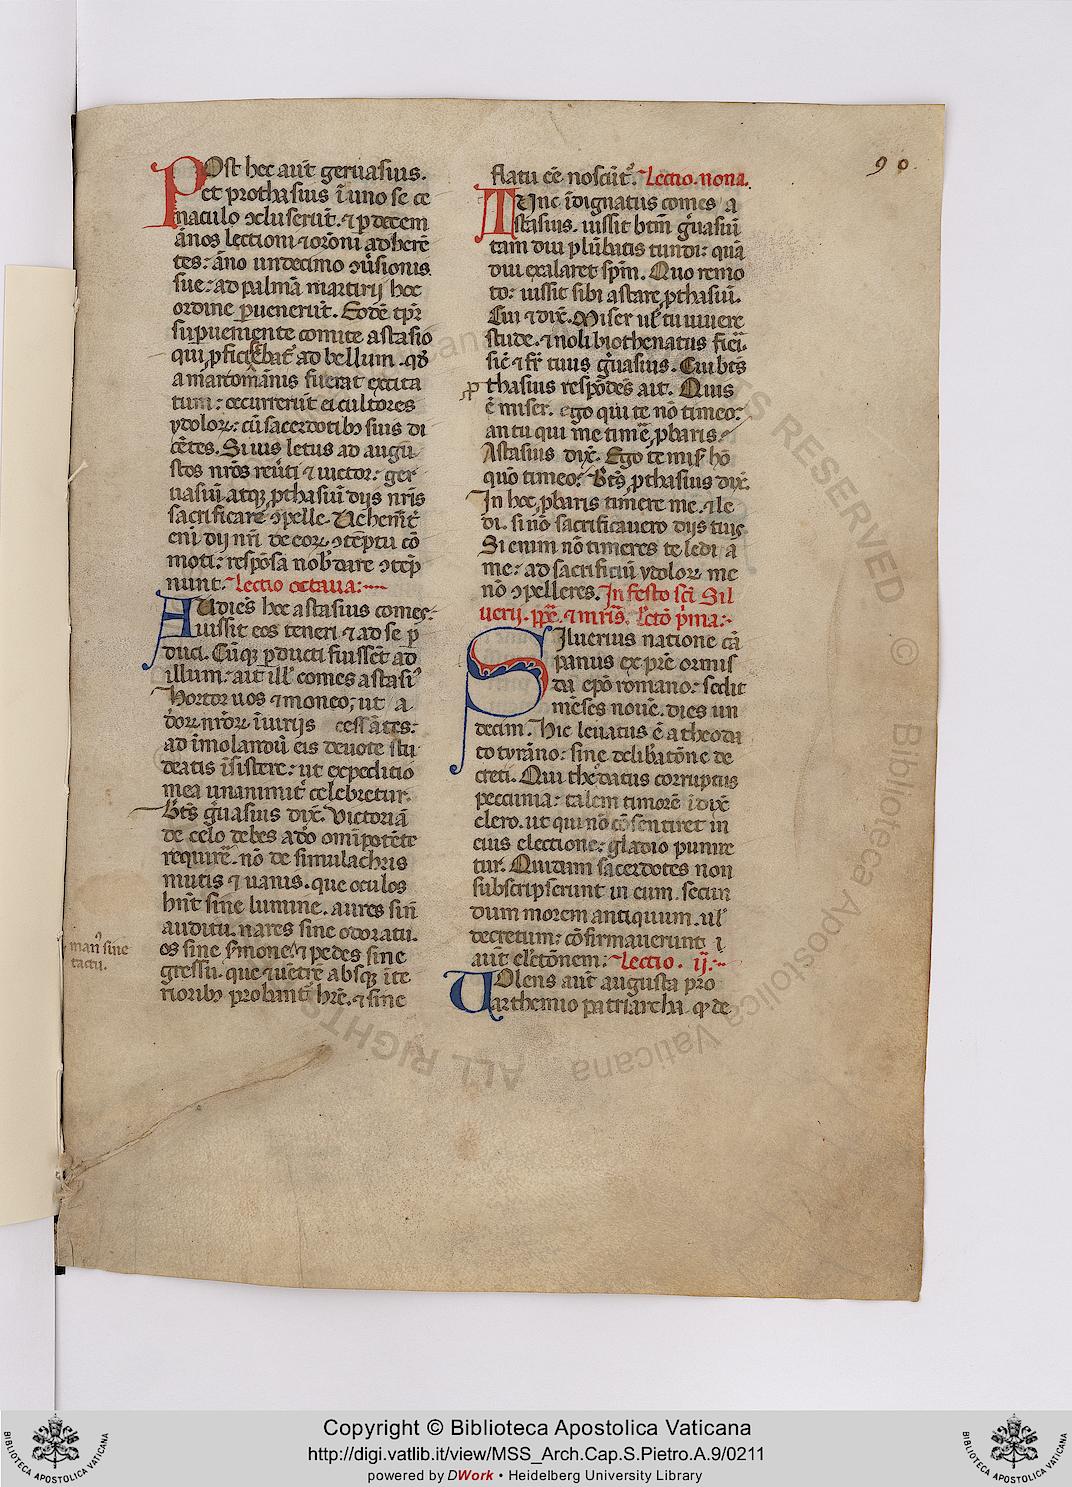 90.
POst hec aut̄ geruasius.
et prothasius ī uno se ce
naculo ꝯcluserūt. ⁊ ꝑ decem
ānos lectioni ⁊ orōni adherē
tes: āno undecimo ꝯuersionis
sue: ad palmā martirij hoc
ordine ꝑuenerūt. Eodē tp̄r
suꝑueniente comite astasio
qui ꝓficisēbat̄ ad bellum. qđ
a marcomānis fuerat excita
tum: occurrerūt ei cultores
ydoloꝝ: cū sacerdotibꝰ suis di
cētes. Si uis letus ad augu
stos nr̄os reuerti ⁊ uictor: ger
uasiū atqꝫ ꝓthasiū dijs nr̄is
sacrificare ꝯpelle. Uehemēt̄
eni dij nr̄i de eoꝝ ꝯtēptu cō
moti: respōsa nob̄ dare ꝯtēp
nunt. Lectio octaua:
AUdiēs hec astasius comes
iussit eos teneri ⁊ ad se ꝑ
duci. Cūqꝫ ꝑducti fuissēt ad
illum: ait ill̓ comes astasiꝰ
Hortor uos ⁊ moneo, ut a
doꝝ nr̄oꝝ īiurijs cessātes:
ad īmolandū eis deuote stu
deatis īsistere: ut expeditio
mea unanimit̄ celebretur.
Bt̄s geruasius dix̄. Victoriā
de celo debes a deo omīpotēte
requirē. nō de simulachris
mutis ⁊ uanis. que oculos
hn̄t sine lumine. aures sin̄
auditu. nares sine odoratu.
os sine sermone. ⁊ pedes sine
gressu. que ⁊ uētrē absqꝫ īte
rioribꝰ probant̄ hr̄e. ⁊ sine
manꝰ sine
tactu.
flatu eē noscūt̄. Lectio. nona.
TUnc īdignatus comes a
stasius. iussit btm̄ geruasiū
tam diu plūbatis tundi: quā
diu exalaret sp̄m. Quo remo
to: iussit sibi astare ꝓthasiū.
Cui ⁊ dix̄. Miser ul̓ tu uiuere
stude. ⁊ noli biothenatus fieri
sic̄ ⁊ fr̄ tuus geruasius. Cui bt̄s
ꝓthasius respōdēs ait. Quis
ē miser. ego qui te nō timeo:
an tu qui me timē ꝓbaris.
Astasius dix̄. Ego te misꝫ hō
quō timeo: Bt̄s ꝓthasius dix̄.
In hec ꝓbaris timere me. ⁊ le
di. si nō sacrificauero dijs tuis.
Si enim nō timeres te ledi a
me: ad sacrificiū ydoloꝝ me
nō ꝯpelleres. In festo sc̄i Sil
uerij. pp̄e. ⁊ mr̄is. lc̄tō pͥma:
SIluerius natione cā
panus ex pr̄e ormis
da ep̄o romano: sedit
mēses nouē. dies un
decim. Hic leuatus ē a theoda
to tyrāno: sine delibatōne de
creti. Qui theodatus corruptus
peccunia: talem timorē īdix̄
clero. ut qui nō cōsentiret in
eius electione: gladio punire
tur. Quidam sacerdotes non
subscripserunt in eum. secun
dum morem antiquum. ul̓
decretum: cōfirmauerunt ī
aut elētōnem: Lectio. ij.
UOlens aut̄ augusta pro
arthemio patriarcha. qꝫ de
Copyright © Biblioteca Apostolica Vaticana
http://digi.vatlib.it/view/MSS_Arch.Cap.S.Pietro.A.9/0211
powered by DWork • Heidelberg University Library
BIBLIOTECA APOSTOLICA VATICANA
BIBLIOTECA APOSTOLICA VATICANA
ALL RIGHTS RESERVED © Biblioteca Apostolica Vaticana